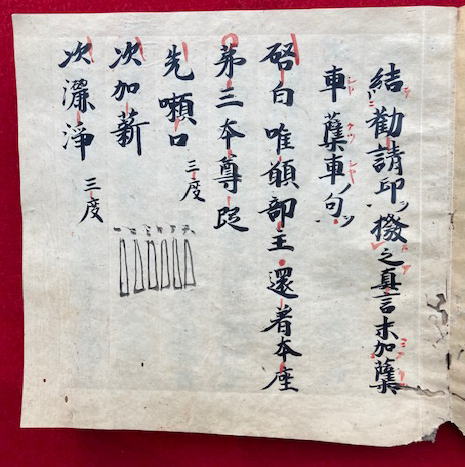 結勧請印撥之真言末加蘖
車蘖車句
啓白唯願部王還着本座
第三本尊段
先嗽口三度
次加薪
次灑淨三度